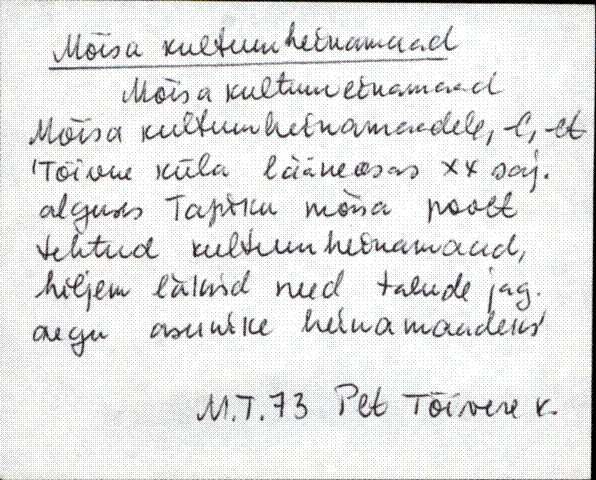 Mõisa kultuurheinamaad
Mõisa kultuureinamaad
Mõisa kultuurheinamaadele, -l, -lt
'Tõivere küla lääneosas XX saj.
alguses Tapiku mõisa poolt
tehtud kultuurheinamaad,
hiljem läksid need talude jag.
aegu asunike heinamaadeks'
M.T.73 Plt Tõivere k.